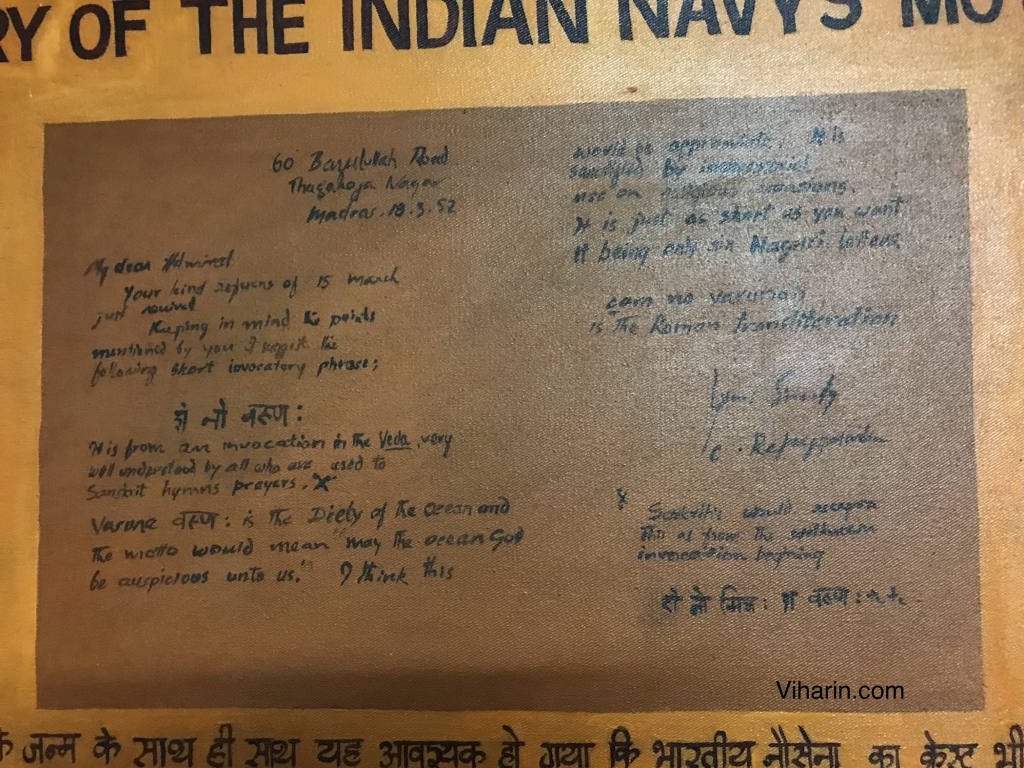 RY OF THE INDIAN NAVY'S MO
60 Bazullah Road
Thagaraja Nagar
Madras. 18.3.52
My dear Admiral
Your kind of 15 march
just
Keeping in mind the points
mentioned by you I suggest the
following short invocatory phrase;
शं नो वरूण:
It is from an invocation in the Veda, very
well understood by all who are used to
Sanskrit hymns prayers. X
Varune वरूण: is the Diety of the ocean and
the motto would mean "may the ocean God
be auspicious unto us." I think this
would be appropriate. It is
sanctified by immemorial
use on religious occasions.
It is just as short as you want
It being only six Nagari letters
no varunah
is The Roman transliteration
C.
X
would
this as from the
नो मित्र: वरूण:
Viharin.com
के जन्म के साथ ही साथ यह आवश्यक हो गया कि भारतीय नौसेना का क्रेस्ट भी